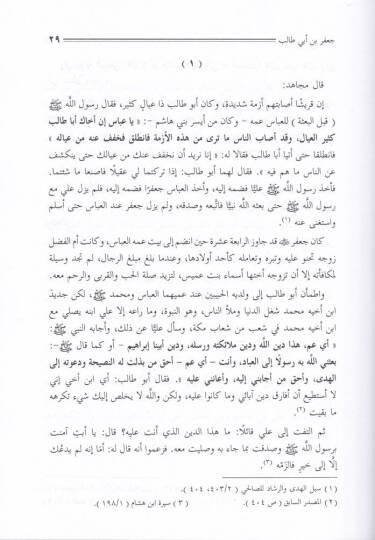 جعفر بن أبي طالب ٢٩
( ١ )
قال مجاهد:
إن قريشًا أصابتهم أزمة شديدة، وكان أبو طالب ذا عيالٍ كثير، فقال رسول اللَّه ﷺ
( قبل البعثة ) للعباس عمه – وكان من أيسر بني هاشم –: « يا عباس إن أخاك أبا طالب
كثير العيال، وقد أصاب الناس ما ترى من هذه الأزمة فانطلق فخفف عنه من عياله »
فانطلقا حتى أتيا أبا طالب فقالا له: « إنا نريد أن نخفف عنك من عيالك حتى ينكشف
عن الناس ما هم فيه ». فقال لهما أبو طالب: إذا تركتما لي عقيلًا فاصنعا ما شئتما.
فأخذ رسول اللَّه ﷺ عليًّا فضمه إليه، وأخذ العباس جعفرًا فضمه إليه، فلم يزل علي مع
رسول اللَّه ﷺ حتى بعثه اللَّه نبيًّا فاتَّبعه وصدقه، ولم يزل جعفر عند العباس حتى أسلم
واستغنى عنه (١).
كان جعفر قد جاوز الرابعة عشرة حين انضم إلى بيت عمه العباس، وكانت أم الفضل
زوجه تحنو عليه وتبره وتعامله كأحد أولادها، وعندما بلغ مبلغ الرجال، لم تجد وسيلة
لمكافأته إلا أن تزوجه أختها أسماء بنت عميس، لتزيد صلة الحب والقربى والرحم معه.
واطمأن أبو طالب إلى ولديه الحبيبين عند عميهما العباس ومحمد ﷺ، لكن جديدَ
ابن أخيه محمد شغل الدنيا وملأ الناس، وهو النبوة، وما راعه إلا علي ابنه يصلي مع
ابن أخيه محمد في شعب من شعاب مكة، وسأل عليًّا عن ذلك، وأجابه النبي ﷺ:
« أي عم، هذا دين اللَّه ودين ملائكته ورسله، ودين أبينا إبراهيم – أو كما قال ﷺ –:
بعثني اللَّه به رسولًا إلى العباد، وأنت – أي عم – أحق من بذلت له النصيحة ودعوته إلى
الهدى، وأحق من أجابني إليه، وأعانني عليه ». فقال أبو طالب: أي ابن أخي إني
لا أستطيع أن أفارق دين آبائي وما كانوا عليه، ولكن واللَّه لا يخلص إليك شيء تكرهه
ما بقيت (٢)
ثم التفت إلى علي قائلًا: ما هذا الدين الذي أنت عليه؟ قال: يا أبتِ آمنت
برسول اللَّه ﷺ وصدقت بما جاء به وصليت معه. فزعموا أنه قال له: أمّا إنه لم يدعُك
إلَّا إلى خيرٍ فالزمْه (٣).
( ١ ) سبل الهدى والرشاد للصالحي ( ٤٠٣/٢، ٤٠٤ ).
( ٢ ) المصدر السابق ( ص ٤٠٤ ). ( ٣ ) سيرة ابن هشام ( ١٩٨/١ ).